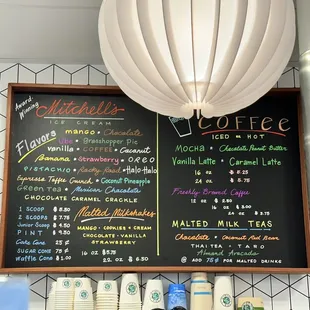 Award
Winning
Mitchell's
ICE CREAM
Flavors
mango · Chocolate
Ube · Grasshopper Pie
vanilla · COFFEE · Coconut
Banana · Strawberry · OREO
PISTACHIO · Rocky Road · Halo-Halo
Espresso Toffee Crunch · Coconut Pineapple
Green Tea · Mexican Chocolate
CHOCOLATE CARAMEL CRACKLE
1 SCOOP
2 SCOOPS
Junior Scoop
Cake Cone
SUGAR CONE
Waffle Cone
PINT
Malted Milkshakes
MANGO · COOKIES + CREAM
CHOCOLATE · VANILLA
STRAWBERRY
16 oz
22 oz
COFFEE
ICED or HOT
MOCHA · Chocolate Peanut Butter
Vanilla Latte · Caramel Latte
16 oz
24 oz
Freshly Brewed Coffee
12 oz
16 oz
24 oz
MALTED MILK TEAS
Chocolate · Coconut Red Bean
THAI TEA · TARO
Almond Avocado
FOR MALTED DRINKS